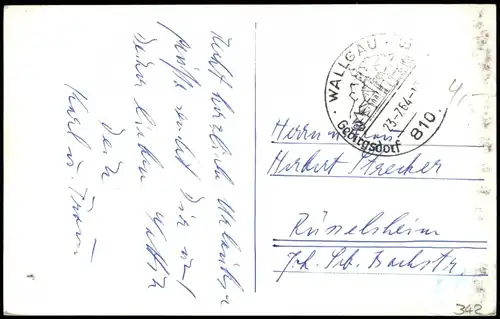 Recht herzliche Urlaubs-
grüße sendet Dir und
Deiner lieben Gattin
Dein
Karl u. Frau.
WALLGAU
23-7.64-1
Gebirgsdorf
810
4,-
Herrn
Herbert Strecker
Rüsselsheim
Joh. Seb. Bachstr.
342